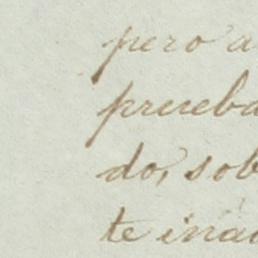 pero a
prueba
do, sob
te ina